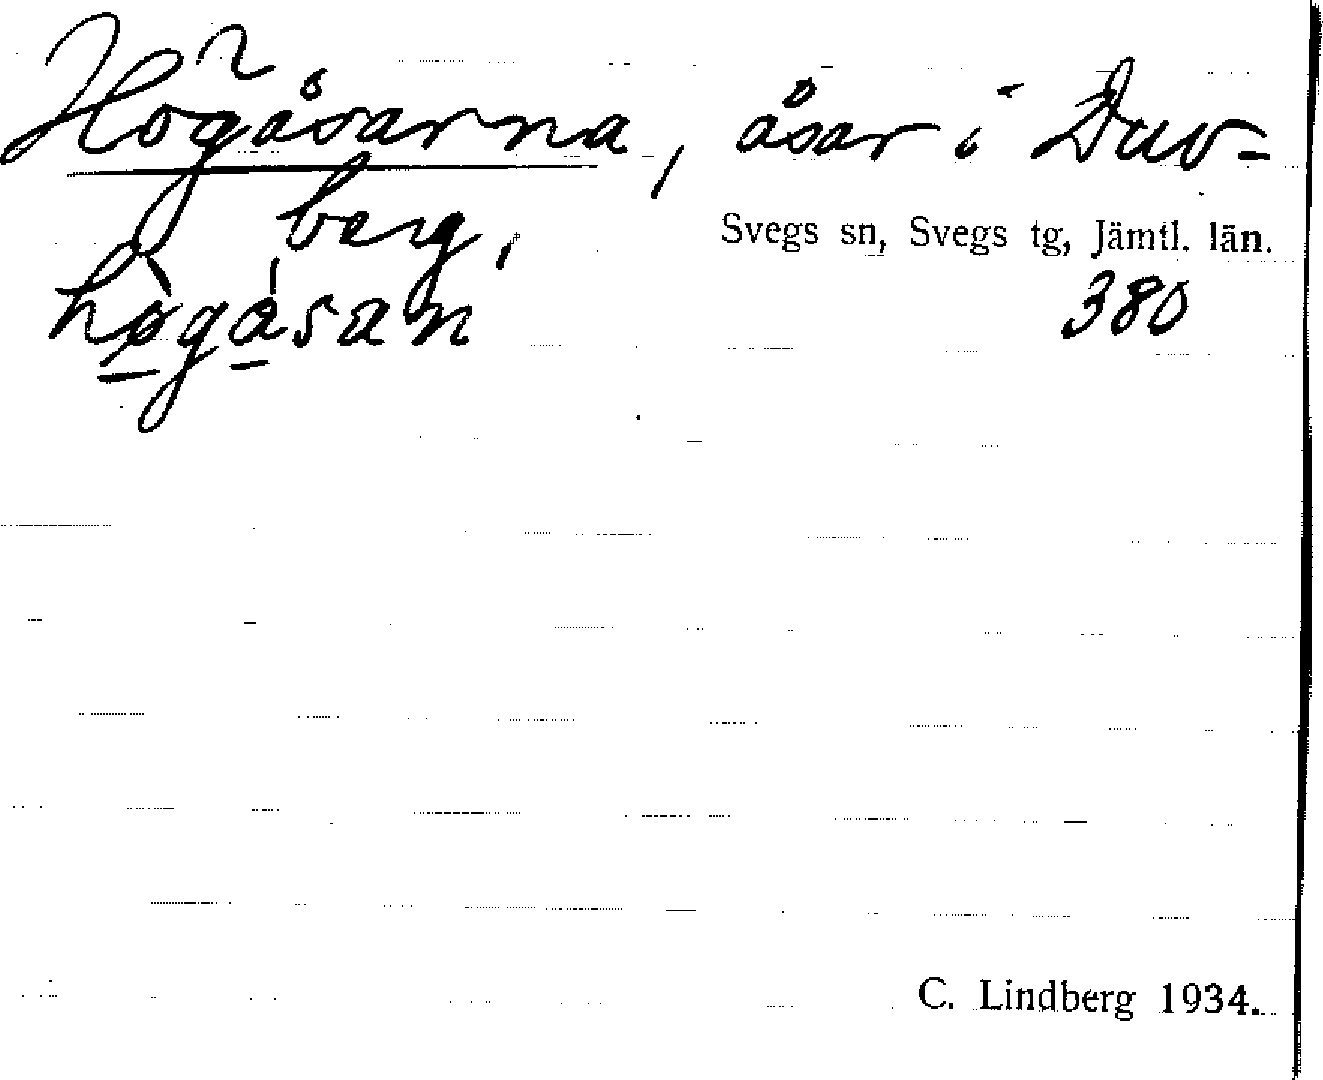 Högåsarna, åsar i Duv-
berg,
Svegs sn, Svegs tg, Jämtl. län.
hø̀gásan
380
C. Lindberg 1934.